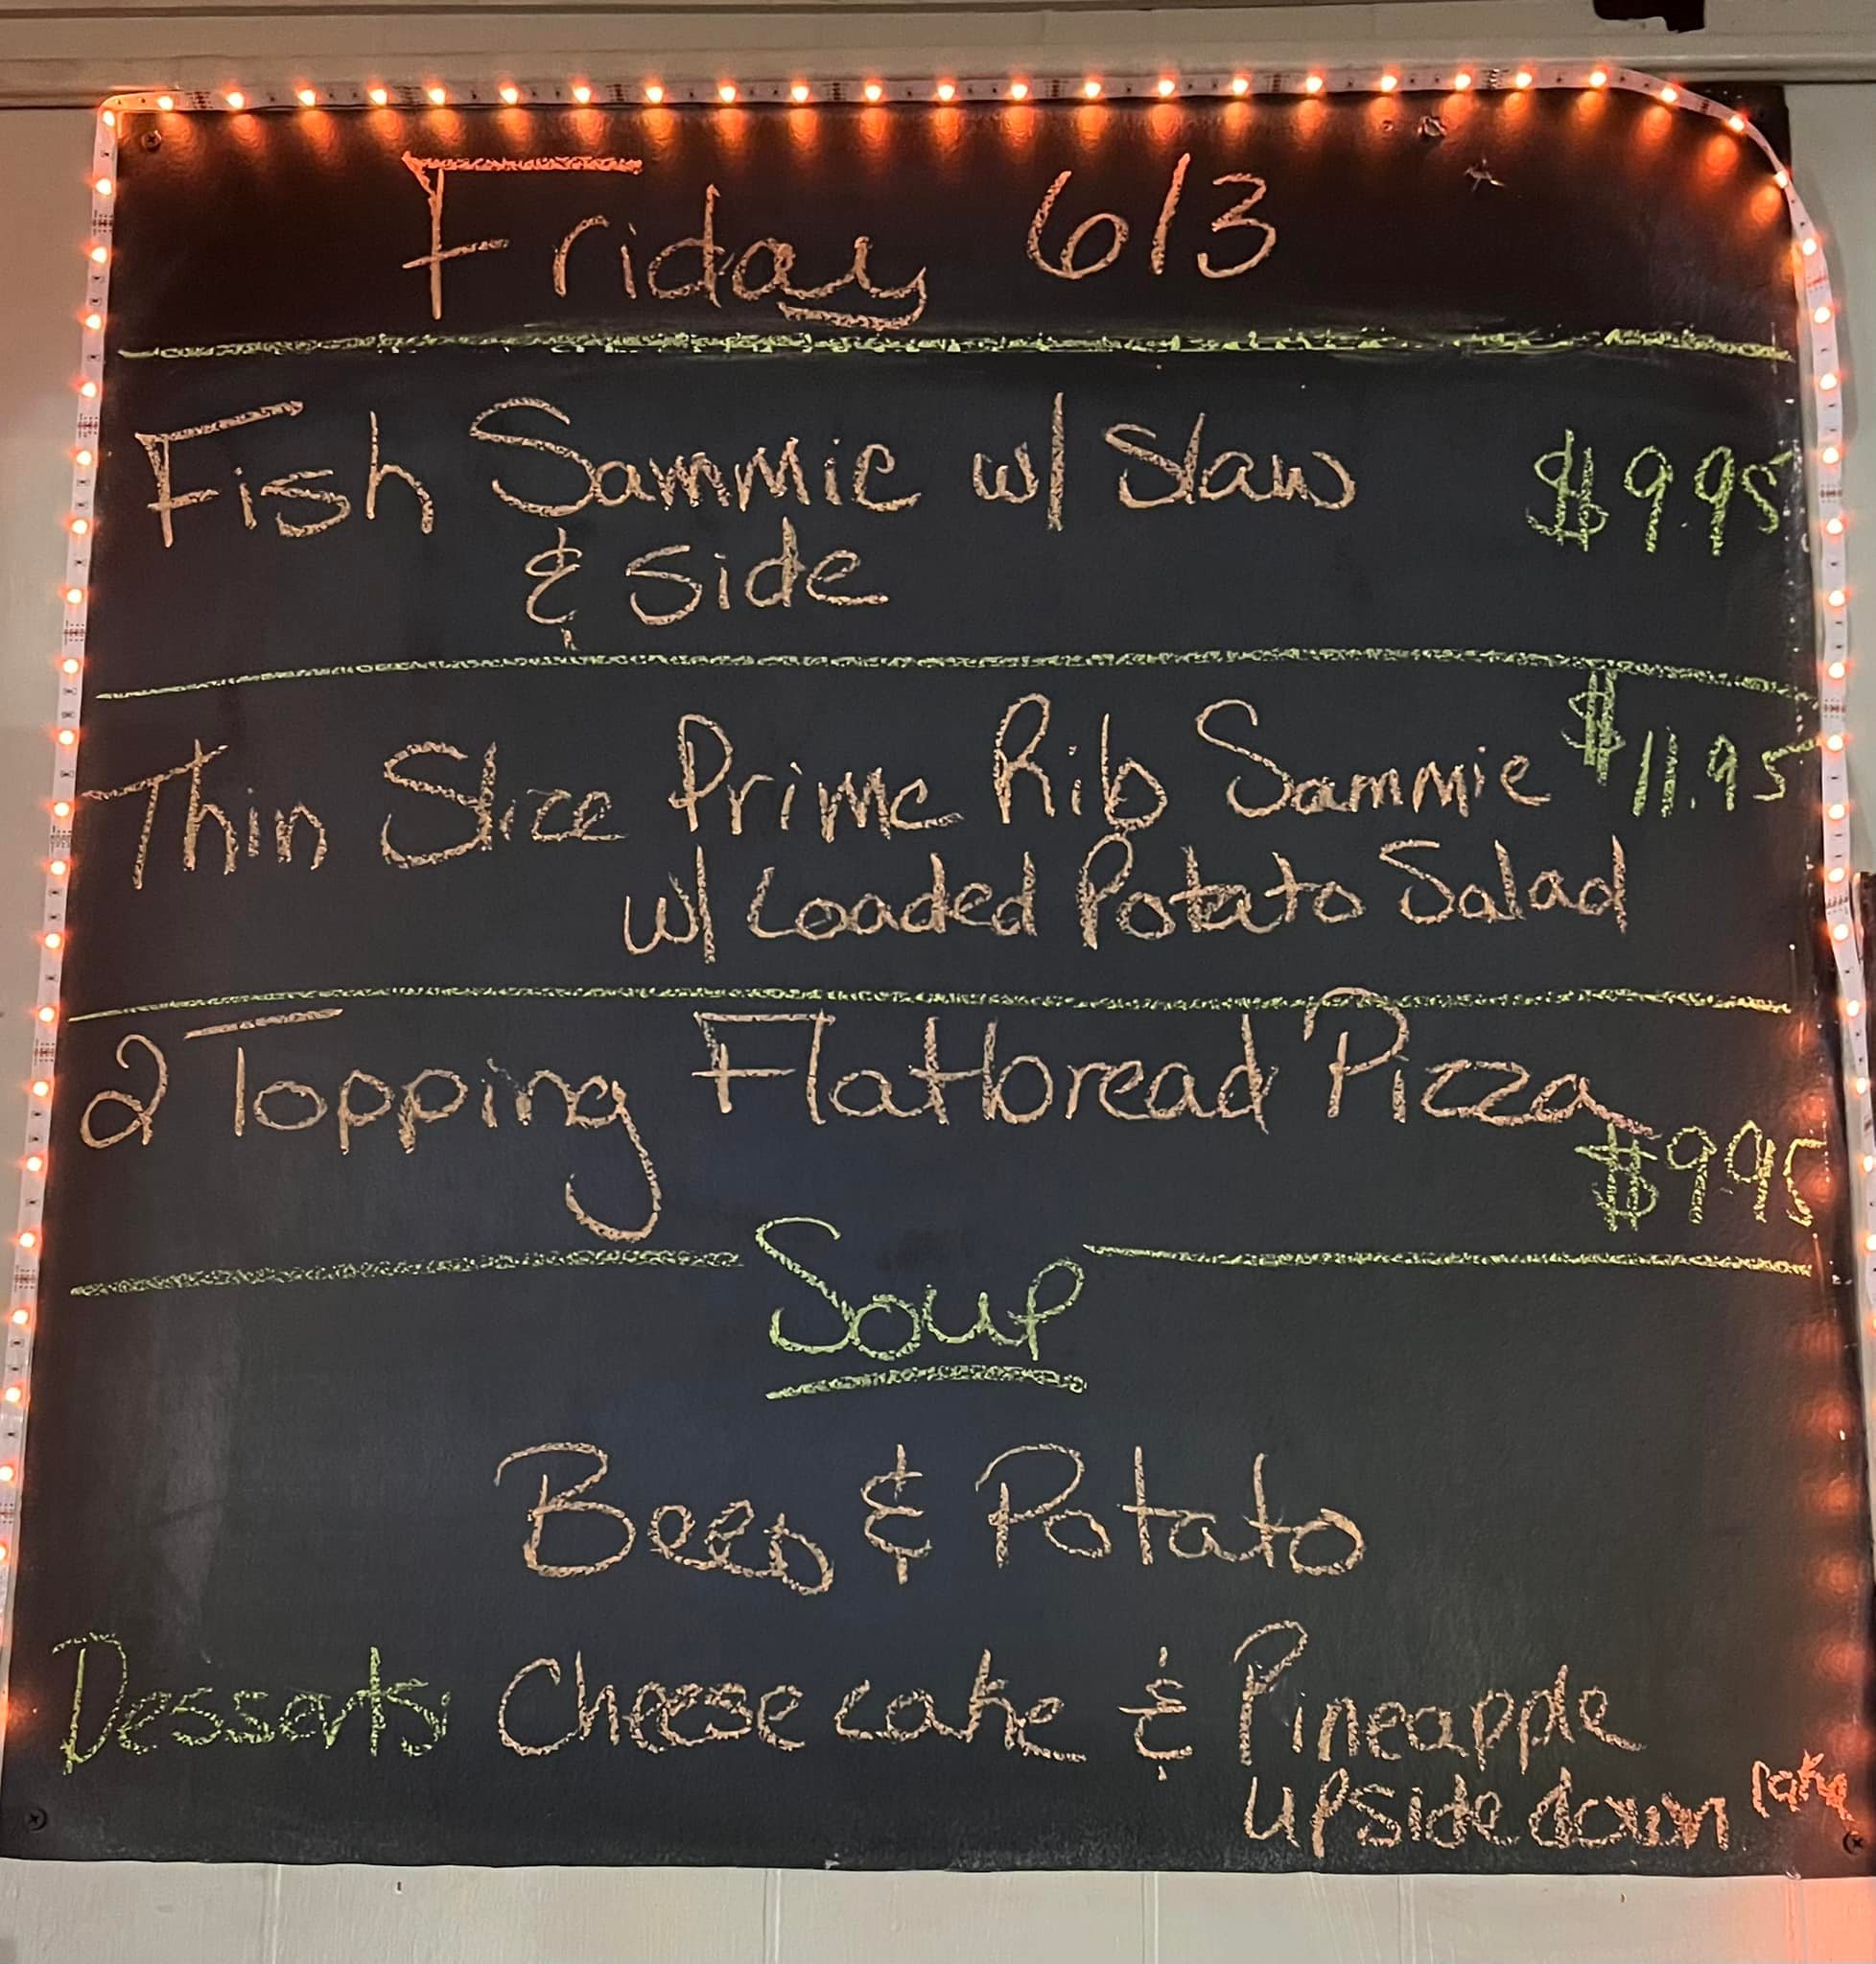 Friday 6/3
Fish Sammie w/ Slaw $9.95
& Side
Thin Slice Prime Rib Sammie $11.95
w/ Loaded Potato Salad
2 Topping Flatbread Pizza
$9.95
Soup
& Potato
Desserts: Cheese cake & Pineapple
upside down cake